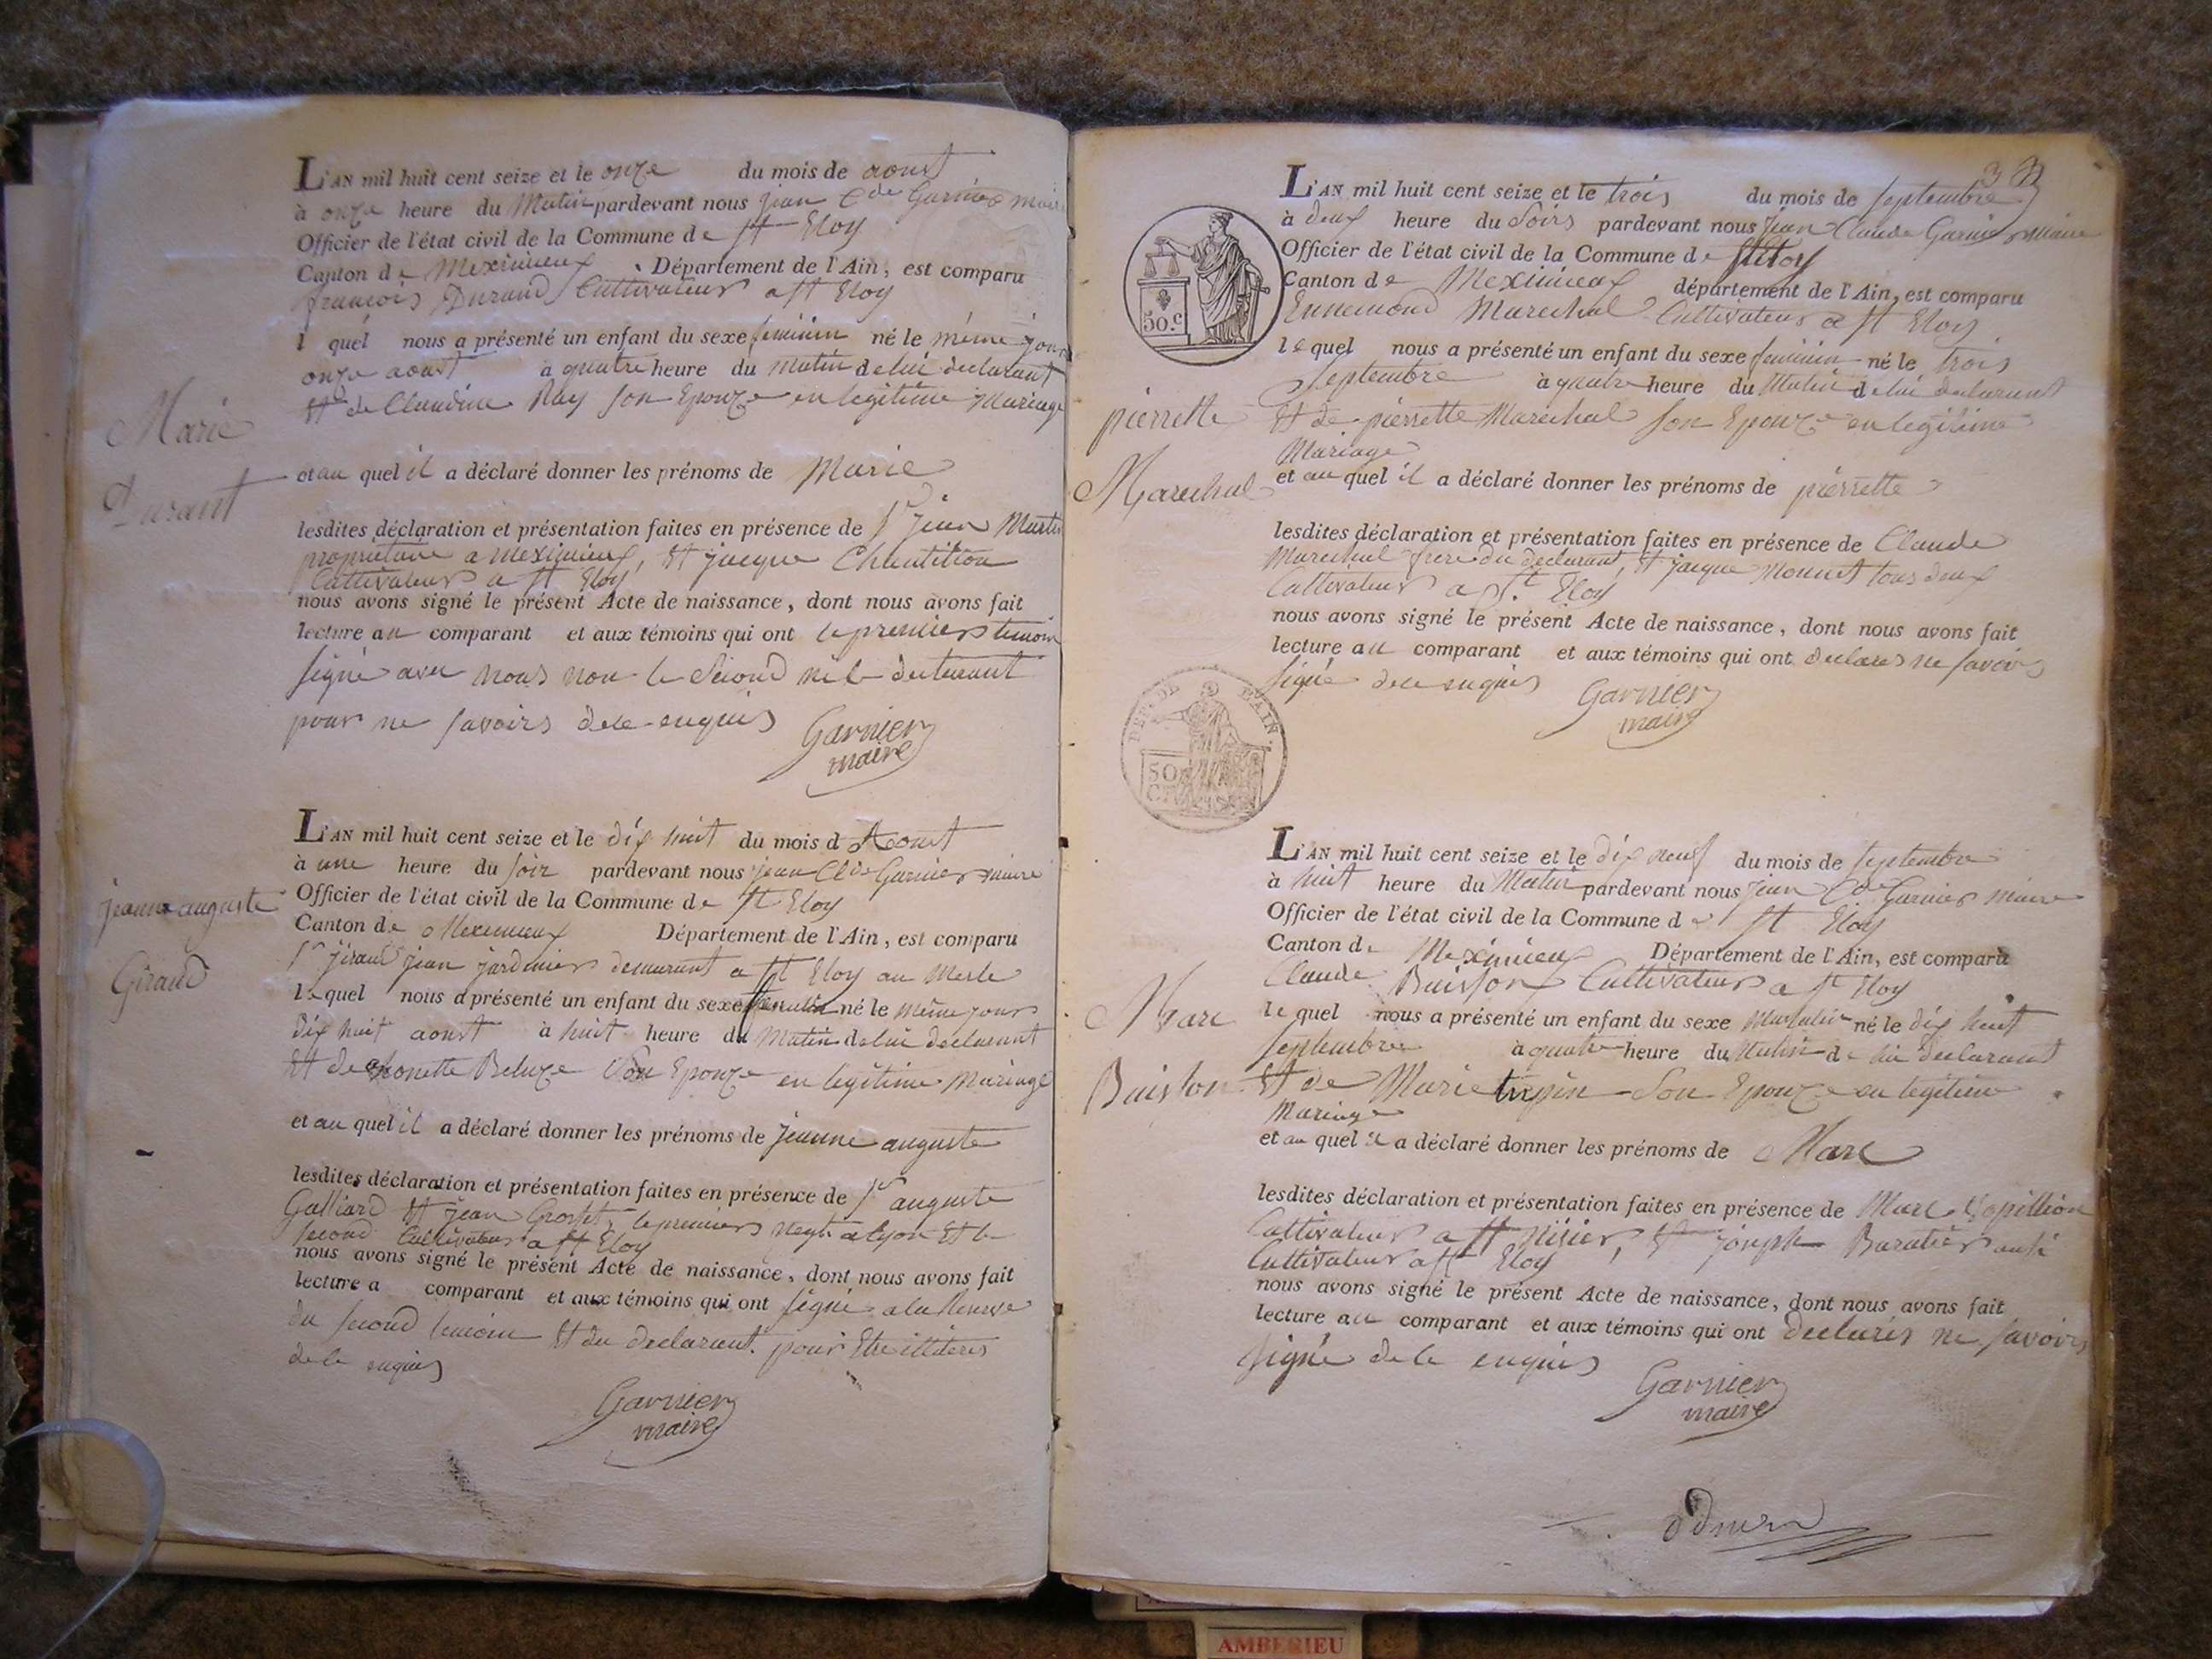 Marie
Durant
L'AN mil huit cent seize et le onze du mois de aoust
à onze heure du Matin pardevant nous jean Cde Garnier maire
Officier de l'état civil de la Commune de St Eloy
Canton de Meximieux, Département de l'Ain, est comparu
françois Durand Cultivateur a St Eloy
l quel nous a présenté un enfant du sexe feminin né le même jour
onze aoust à quatre heure du matin de lui declarant
Et de Claudine Ray son Epouze en legitime Mariage
et au quel il a déclaré donner les prénoms de Marie
lesdites déclaration et présentation faites en présence de Sr Jean Martin
proprietaire a meximieux, Et jacque
Cultivateur a St Eloy
nous avons signé le présent Acte de naissance, dont nous avons fait
lecture au comparant et aux témoins qui ont le premier temoin
signé avec nous non le Second ni le declarant
pour ne savoirs de ce enquis Garnier
maire
jeanne auguste
Giraud
L'AN mil huit cent seize et le dix huit du mois d Aoust
à une heure du soir pardevant nous jean Clde Garnier maire
Officier de l'état civil de la Commune de St Eloy
Canton de Meximieux Département de l'Ain, est comparu
Sr jiraud jean jardinier demeurant a St Eloy au Merle
le quel nous a présenté un enfant du sexe feminin né le même jour
dix huit aoust à huit heure du Matin de lui declarant
Et de Beluze Son Epouze en legitime Mariage
et au quel il a déclaré donner les prénoms de jeanne auguste
lesdites déclaration et présentation faites en présence de Sr auguste
Galliard Et jean le premier negt a Lyon Et le
second Cultivateur a St Eloy
nous avons signé le présent Acte de naissance, dont nous avons fait
lecture a comparant et aux témoins qui ont signé a la Reserve
du second temoin Et du declarant pour Etre illiteres
de ce enquis
Garnier
maire
L'AN mil huit cent seize et le trois du mois de septembre
à deux heure du Soirs pardevant nous Jean Claude Garnier maire
Officier de l'état civil de la Commune de St Eloy
Canton de Meximieux département de l'Ain, est comparu
Ennemond Marechal Cultivateur a St Eloy
50.c
le quel nous a présenté un enfant du sexe feminin né le trois
Septembre à quatre heure du Matin de lui declarant
pierrette
Marechal
Et de pierrette Marechal son Epouze en legitime
Mariage
et au quel il a déclaré donner les prénoms de pierrette
lesdites déclaration et présentation faites en présence de Claude
Marechal frere du declarant, Et jacque Monnet tous deux
Cultivateur a St. Eloy
nous avons signé le présent Acte de naissance, dont nous avons fait
lecture au comparant et aux témoins qui ont declares ne savoir
signé de ce enquis Garnier
maire
DEP. DE L'AIN.
50
C.
L'AN mil huit cent seize et le dix neuf du mois de septembre
à huit heure du Matin pardevant nous jean Cde Garnier maire
Officier de l'état civil de la Commune de St Eloy
Canton de Meximieux Département de l'Ain, est comparu
Claude Buisson Cultivateur a St Eloy
Marc
Buisson
le quel nous a présenté un enfant du sexe Masculin né le dix huit
septembre à quatre heure du Matin de lui declarant
Et de Marie tupin Son Epouze en legitime
Mariage
et au quel il a déclaré donner les prénoms de Marc
lesdites déclaration et présentation faites en présence de Marc
Cultivateur a St Nisier, Et joseph Baratier aussi
Cultivateur a St Eloy
nous avons signé le présent Acte de naissance, dont nous avons fait
lecture au comparant et aux témoins qui ont declarés ne savoirs
signé de ce enquis Garnier
maire
AMBERIEU